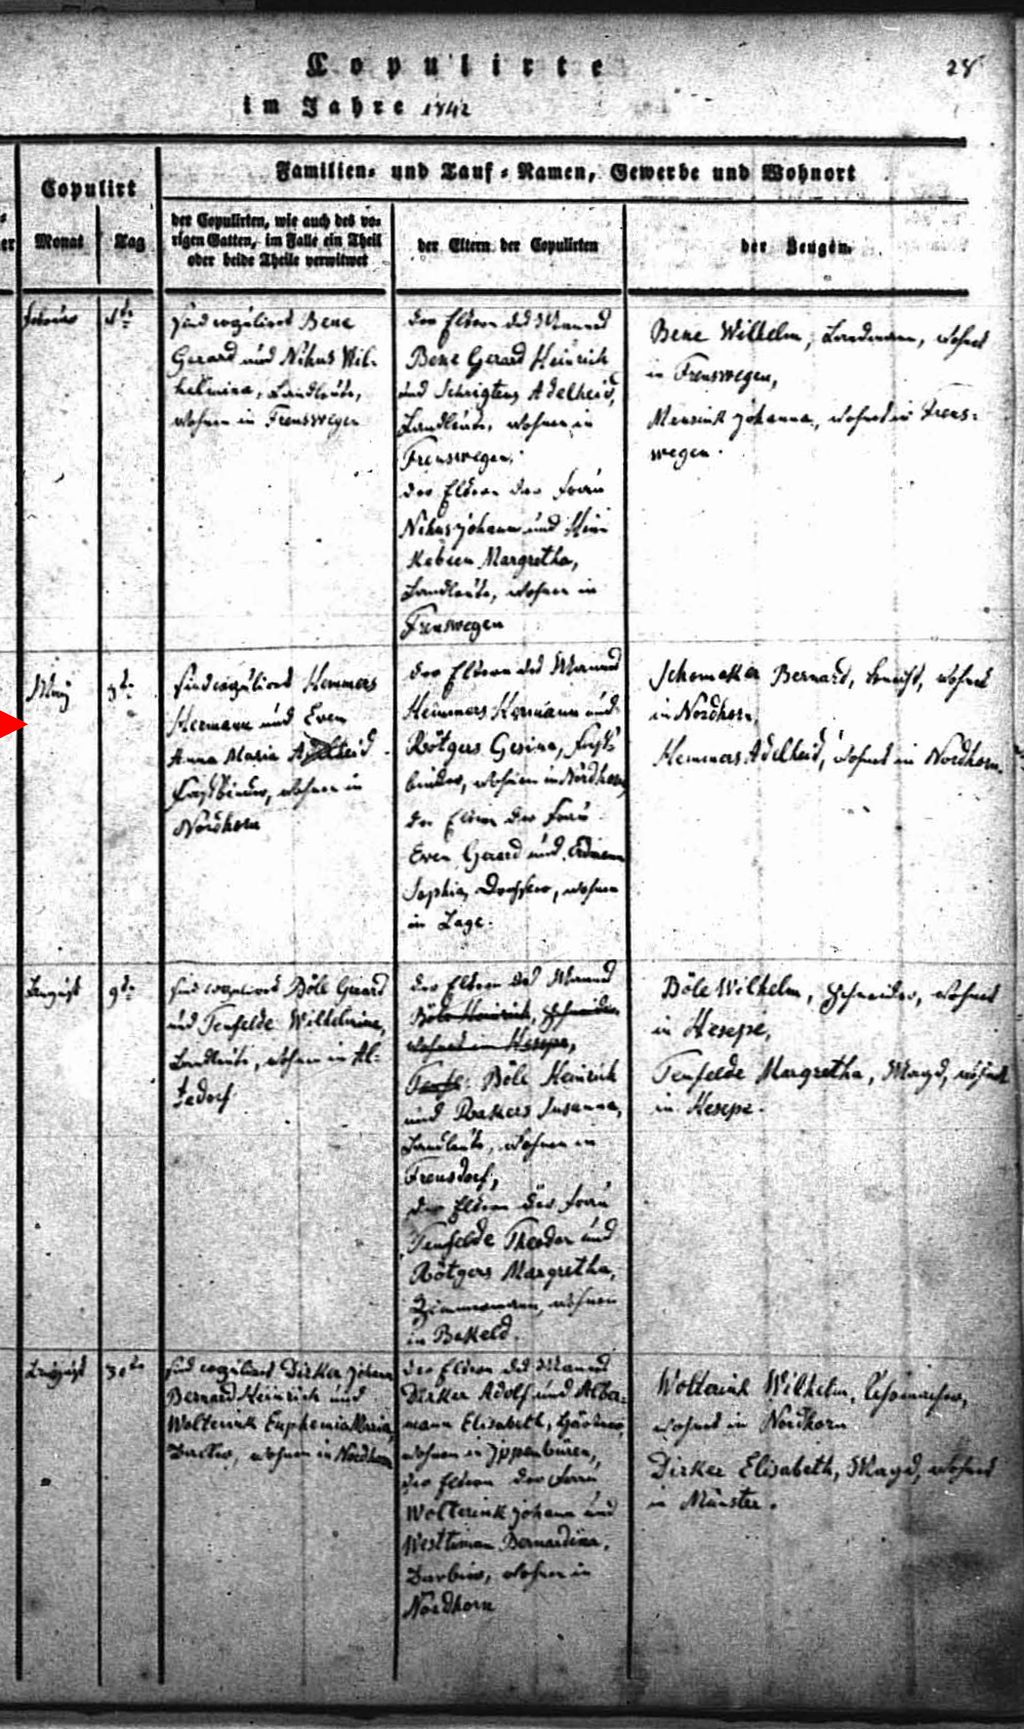 Copulirte
28
im Jahre 1842
Copulirt
Monat
Tag
Familien- und Tauf-Namen, Gewerbe und Wohnort
der Copulirten, wie auch des vo-
rigen Gatten, im Falle ein Theil
oder beide Theile verwitwet
der Eltern der Copulirten
der Zeugen
sind copulirt Bene
Gerard und Nihus Wil-
helmina, Landleute,
wohnen in Frenswegen
der Eltern des Mannes
Bene Gerard Heinrich
und Adelheid,
Landleute, wohnen in
Frenswegen.
der Eltern der Frau
Nihus Johann und
Margretha,
Landleute, wohnen in
Frenswegen
Bene Wilhelm, Landmann, wohnt
in Frenswegen,
Mensink Johanna, wohnt in Frens-
wegen.
May
3te
sind copulirt Hemmers
Hermann und Even
Anna Maria
Faßbinder, wohnen in
Nordhorn
der Eltern des Mannes
Hemmers Hermann und
Rötgers Gesina, Faß-
binder, wohnen in Nordhorn
der Eltern der Frau
Even Gerard und
Sophia, wohnen
in Lage.
Schomaker Bernard, Knecht, wohnt
in Nordhorn,
Hemmers Adelheid, wohnt in Nordhorn.
August
9te
sind copulirt Böle Gerard
und Tenfelde Wilhelmina,
Landleute, wohnen in Al-
tedorf
der Eltern des Mannes
Böle Heinrich, Schneider,
wohnt in Hesepe,
Böle Heinrich
und Rakers Susanna,
Landleute, wohnen in
Frensdorf,
der Eltern der Frau
Tenfelde Theodor und
Rötgers Margretha,
Zimmermann, wohnen
in Bakeld.
Böle Wilhelm, Schneider, wohnt
in Hesepe,
Tenfelde Margretha, Magd, wohnt
in Hesepe.
August
30te
sind copulirt Dirker Johann
Bernard Heinrich und
Wolterink Euphemia Maria,
wohnen in Nordhorn
der Eltern des Mannes
Dirker Adolf und Alber-
mann Elisabeth,
wohnen in Ippenbüren,
der Eltern der Frau
Wolterink Johann und
Bernardina,
wohnen in
Nordhorn
Wolterink Wilhelm,
wohnt in Nordhorn
Dirker Elisabeth, Magd, wohnt
in Münster.